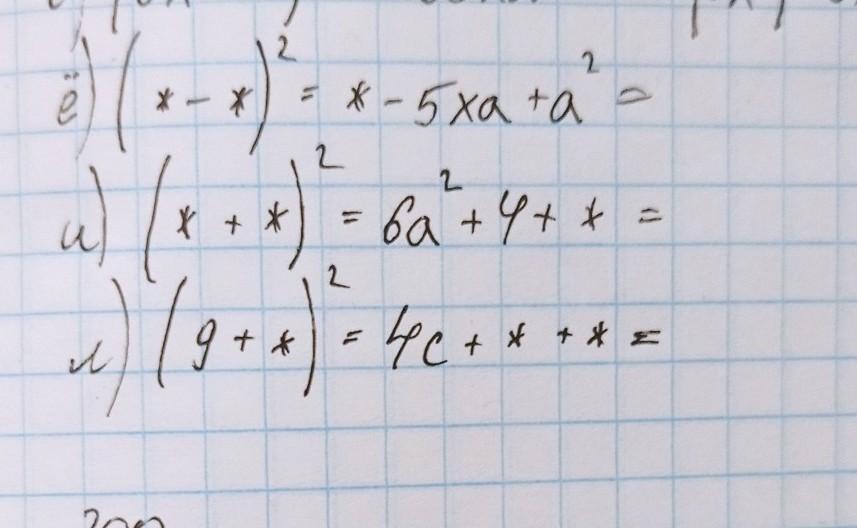 ё) (* - *)² = * - 5xa + a² =
и) (* + *)² = 6a² + 4 + * =
л) (9 + *)² = 4c + * + * =